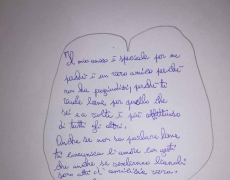 "Il mio amico è speciale per me
perché è un vero amico perché
non ha pregiudizi, perché ti
vuole bene per quello che
sei a volte è più affettuoso
di tutti gli altri.
Anche se non sa parlare bene
ti comunica l'amore coi gesti
che anche se sembrano banali
sono atti di amicizia vera.